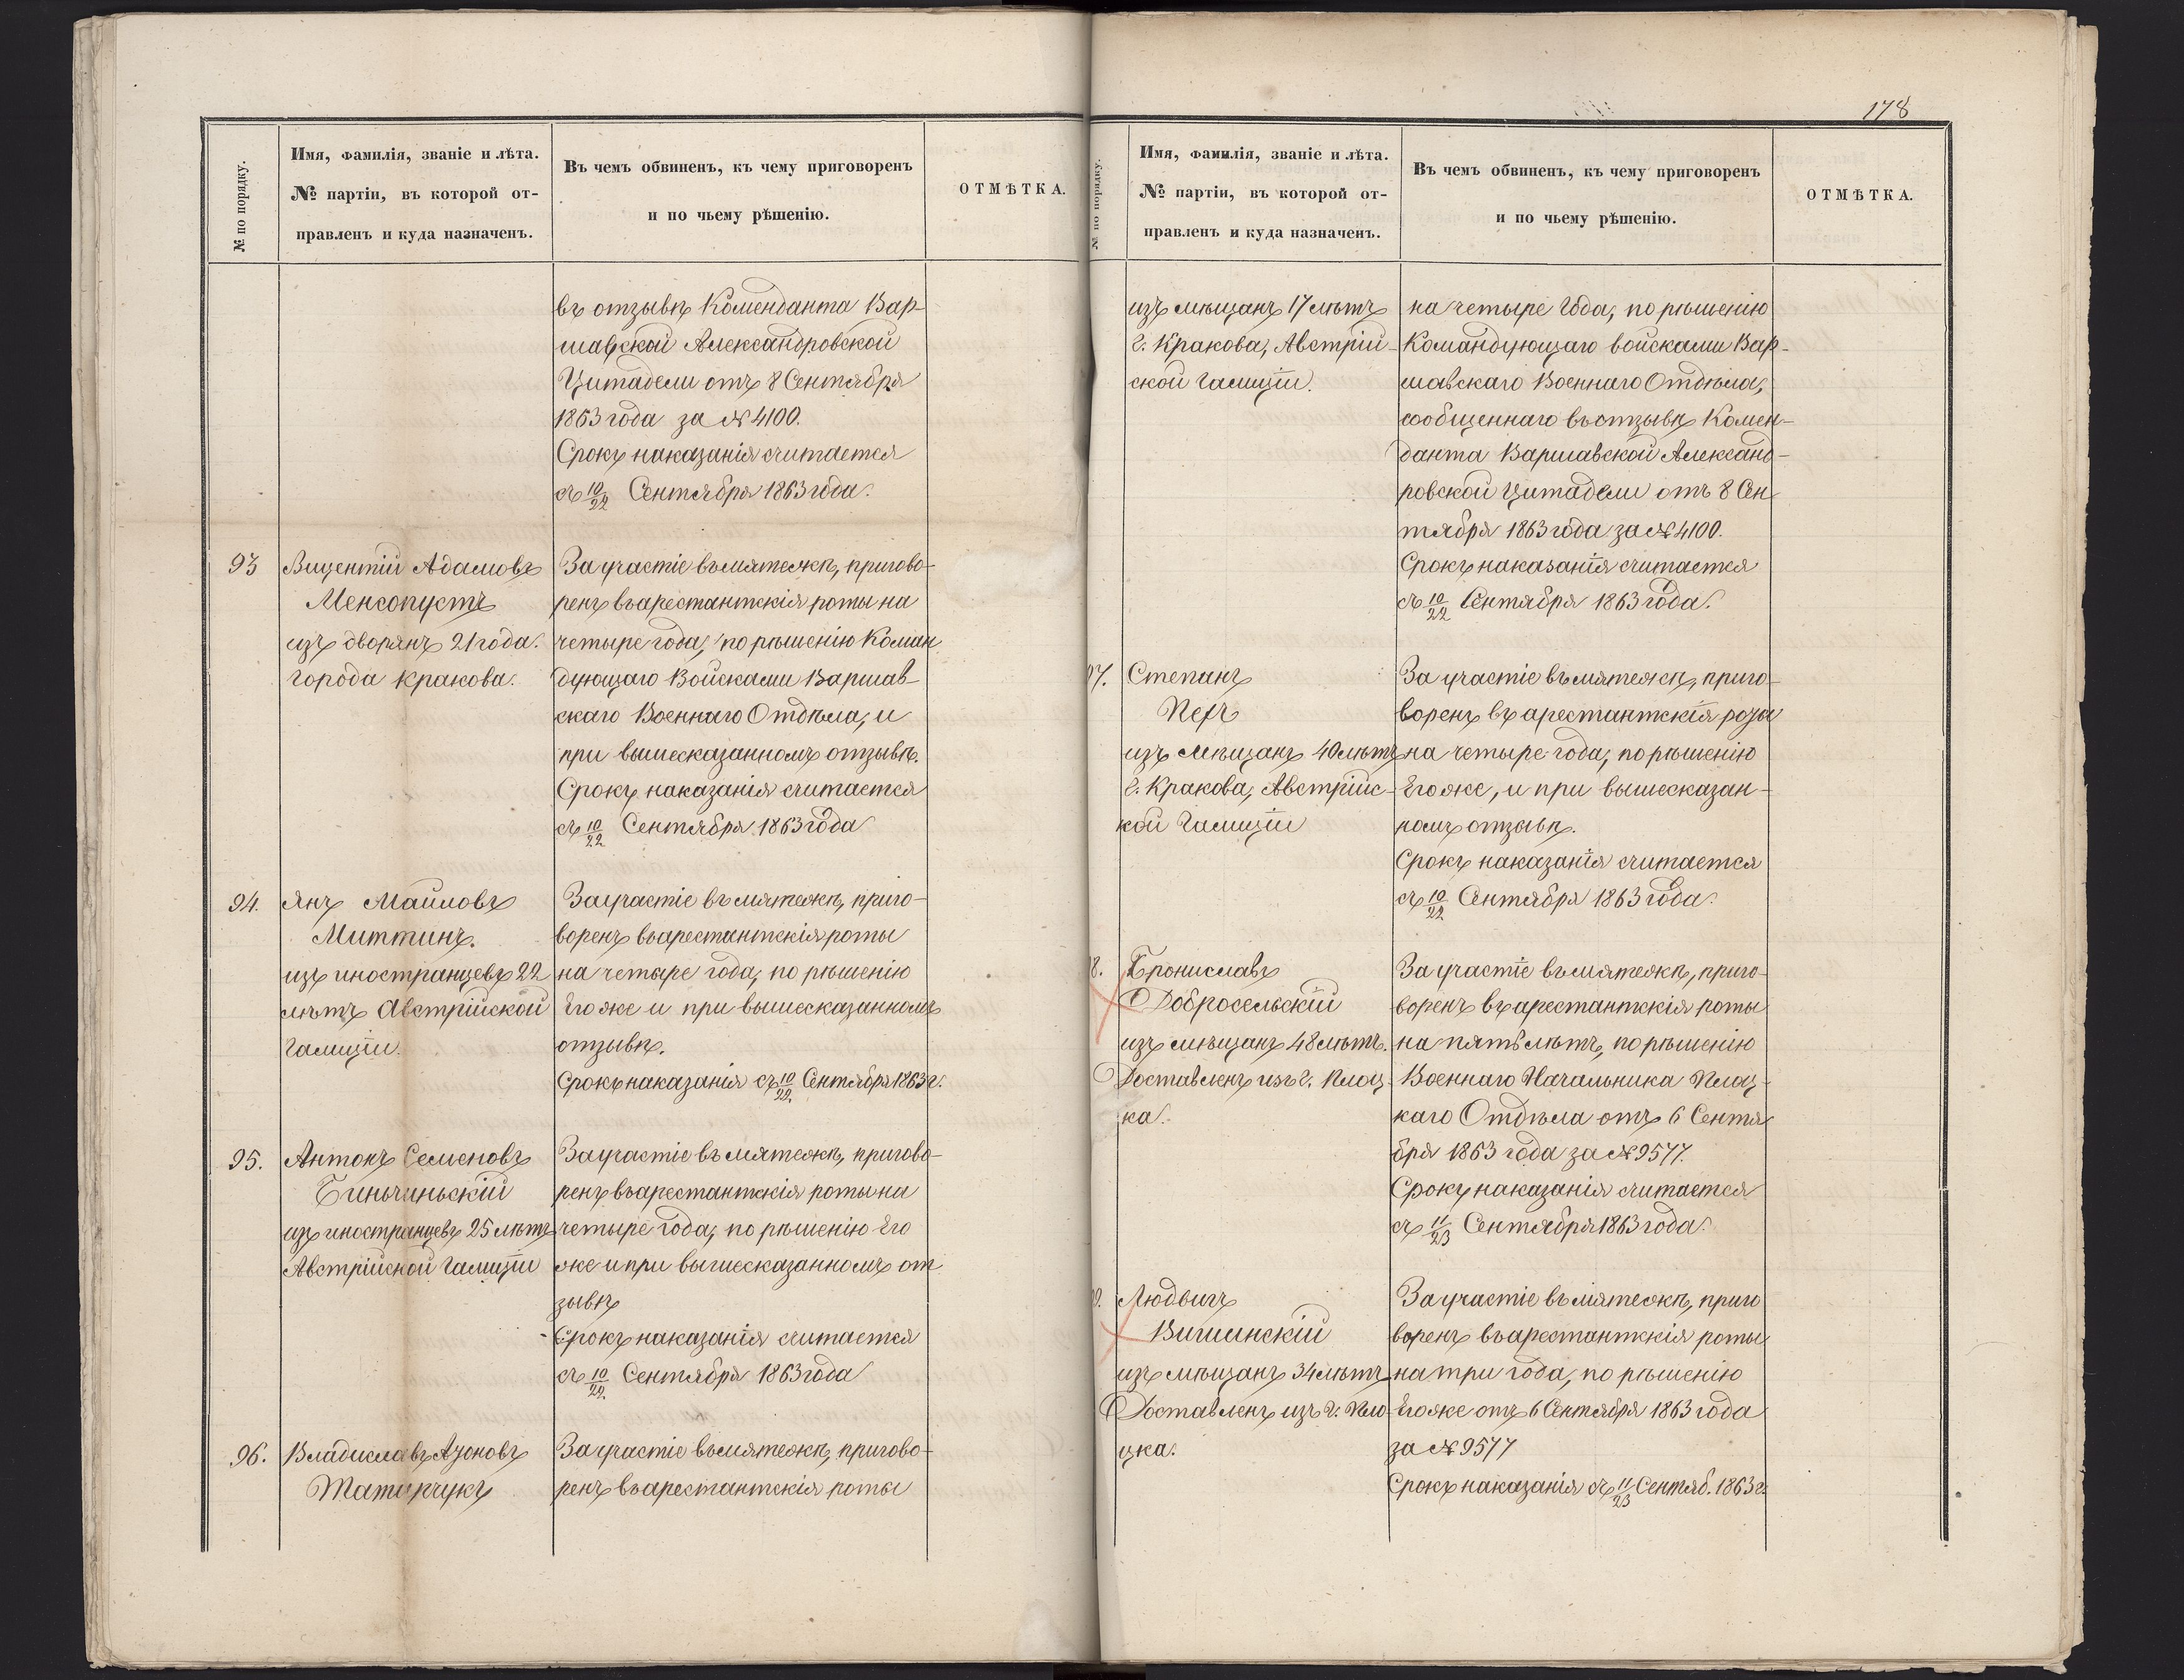 № по порядку.
Имя, фамилія, званіе и лѣта.
№ партіи, въ которой от-
правленъ и куда назначенъ.
Въ чемъ обвиненъ, къ чему приговоренъ
и по чьему рѣшенію.
ОТМѢТКА.
въ отзывѣ Коменданта Вар-
шавской Александровской
Цитадели отъ 8 Сентября
1863 года за № 4100.
Срокъ наказанія считается
съ 10/22 Сентября 1863 года.
93
Вицентій Адамовъ
Менсопустъ
изъ дворянъ 21 года.
города Кракова.
За участіе въ мятежѣ, пригово-
ренъ въ арестантскія роты на
четыре года, по рѣшенію Коман
дующаго Войсками Варшав-
скаго Военнаго Отдѣла, и
при вышесказанномъ отзывѣ.
Срокъ наказанія считается
съ 10/22 Сентября 1863 года
94.
Янъ
Миттинъ.
изъ иностранцевъ 22
лѣтъ Австрійской
Галиціи.
За участіе въ мятежѣ, приго-
воренъ въ арестантскія роты
на четыре года, по рѣшенію
Его же и при вышесказанномъ
отзывѣ.
Срокъ наказанія съ 10/22 Сентября 1863 г.
95.
Антонъ Семеновъ
изъ иностранцевъ 25 лѣтъ
Австрійской Галиціи
За участіе въ мятежѣ, пригово-
ренъ въ арестантскія роты на
четыре года, по рѣшенію Его
же и при вышесказанномъ от
зывѣ
Срокъ наказанія считается
съ 10/22 Сентября 1863 года
96.
Владиславъ
За участіе въ мятежѣ, пригово-
ренъ въ арестантскія роты
178
№ по порядку.
Имя, фамилія, званіе и лѣта.
№ партіи, въ которой от-
правленъ и куда назначенъ.
Въ чемъ обвиненъ, къ чему приговоренъ
и по чьему рѣшенію.
ОТМѢТКА.
изъ мѣщанъ 17 лѣтъ
г. Кракова, Австрій-
ской Галиціи.
на четыре года, по рѣшенію
Командующаго войсками Вар-
шавскаго Военнаго Отдѣла,
сообщеннаго въ отзывѣ Комен-
данта Варшавской Александ-
ровской Цитадели отъ 8 Сен
тября 1863 года за № 4100.
Срокъ наказанія считается
съ 10/22 Сентября 1863 года.
97.
Степанъ
изъ мѣщанъ 40 лѣтъ
г. Кракова, Австрійс-
кой Галиціи
За участіе въ мятежѣ, приго-
воренъ въ арестантскія роты
на четыре года, по рѣшенію
Его же, и при вышесказан-
номъ отзывѣ.
Срокъ наказанія считается
съ 10/22 Сентября 1863 года.
8.
Брониславъ
Добросельскій
изъ мѣщанъ 48 лѣтъ.
Доставленъ изъ г. Плоц-
ка.
За участіе въ мятежѣ, приго-
воренъ въ арестантскія роты
на пять лѣтъ, по рѣшенію
Военнаго Начальника Плоц-
каго Отдѣла отъ 6 Сентя
бря 1863 года за № 9577.
Срокъ наказанія считается
съ 11/23 Сентября 1863 года.
9.
Людвигъ
Вишинскій
изъ мѣщанъ 34 лѣтъ
Доставленъ изъ г. Пло-
цка.
За участіе въ мятежѣ, приго
воренъ въ арестантскія роты
на три года, по рѣшенію
Его же отъ 6 Сентября 1863 года
за № 9577
Срокъ наказанія съ 11/23 Сентяб. 1863 г.